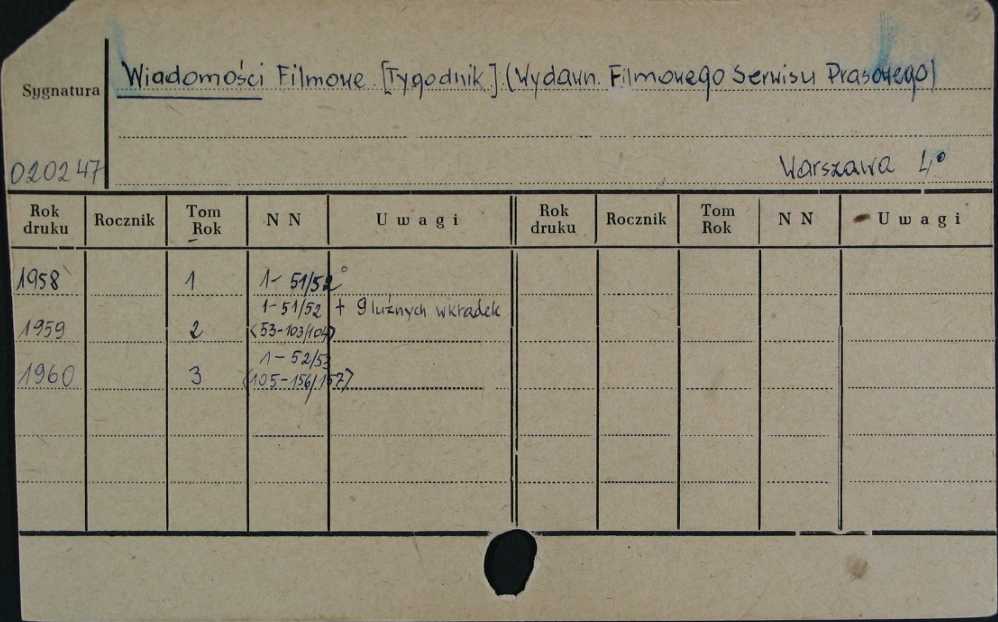 Sygnatura
Wiadomości Filmowe [Tygodnik]. (Wydawn. Filmowego Serwisu Prasowego)
020247
Warszawa 4°
Rok druku Rocznik Tom Rok NN Uwagi Rok druku Rocznik Tom Rok NN Uwagi
1958 1 1-51/52
1-51/52 + 9 luźnych wkradek
1959 2 (53-103/104)
1-52/53
1960 3 (105-156/157)